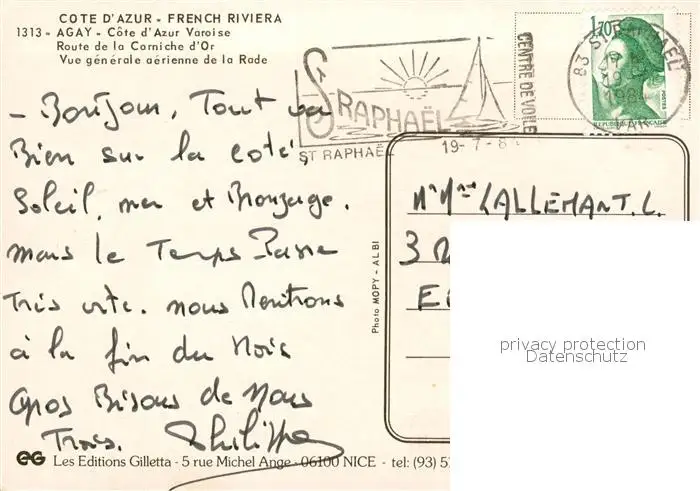 COTE D'AZUR - FRENCH RIVIERA
1313 - AGAY - Côte d'Azur Varoise
Route de la Corniche d'Or
Vue générale aérienne de la Rade
- Bonjour, Tout va
Bien sur la coté,
Soleil, mer et Bronzage.
mais le Temps Passe
Très vite. nous Rentrons
à la fin du Mois
Gros Bisous de Nous
Trois. Philippe
St RAPHAËL
ST RAPHAËL
19-7-8
CENTRE DE VOILE
1,70
POSTES
REPUBLIQUE FRANÇAISE
83 ST RAPHAEL
VAR
Mr Mme LALLEMANT. L.
3
Photo MOPY - ALBI
privacy protection
Datenschutz
eG Les Editions Gilletta - 5 rue Michel Ange - 06100 NICE - tel: (93) 5